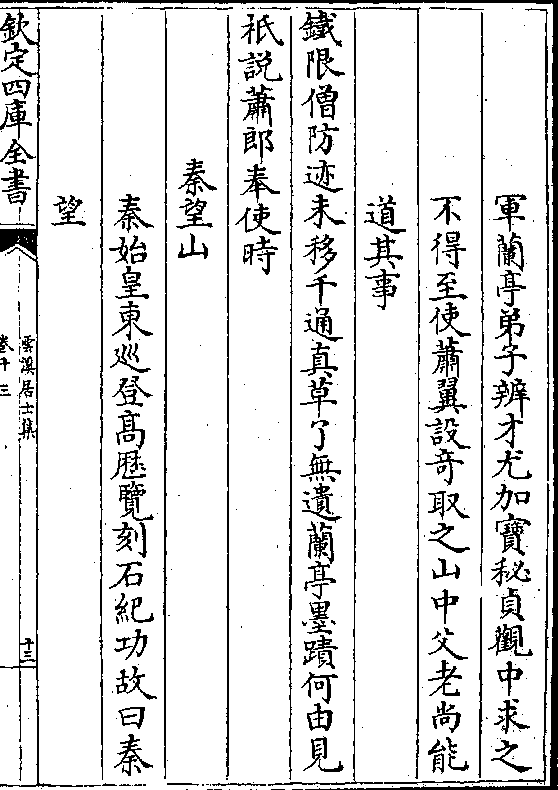 軍蘭亭弟子辨才尤加寶秘貞觀中求之
不得至使蕭翼設竒取之山中父老尚能
道其事
鐵限僧防迹未移千通真草了無遺蘭亭墨蹟何由見
祇説蕭郎奉使時
秦望山
秦始皇東巡登髙歴覽刻石紀功故曰秦
望
欽定四庫全書
雲溪居士集
卷十三
十三